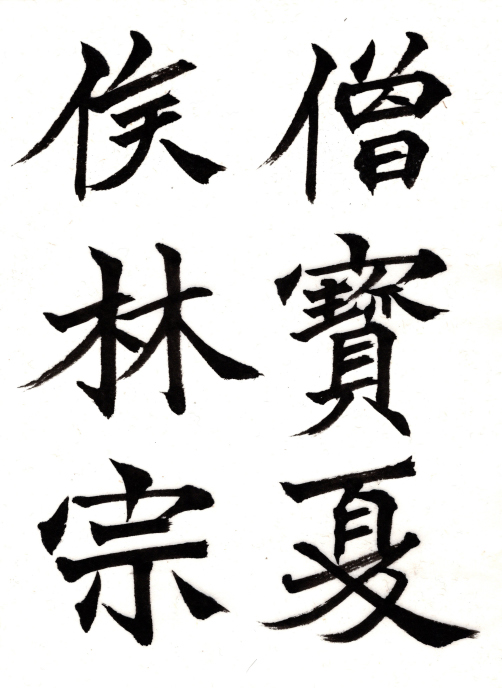 僧寶夏
侯林宗